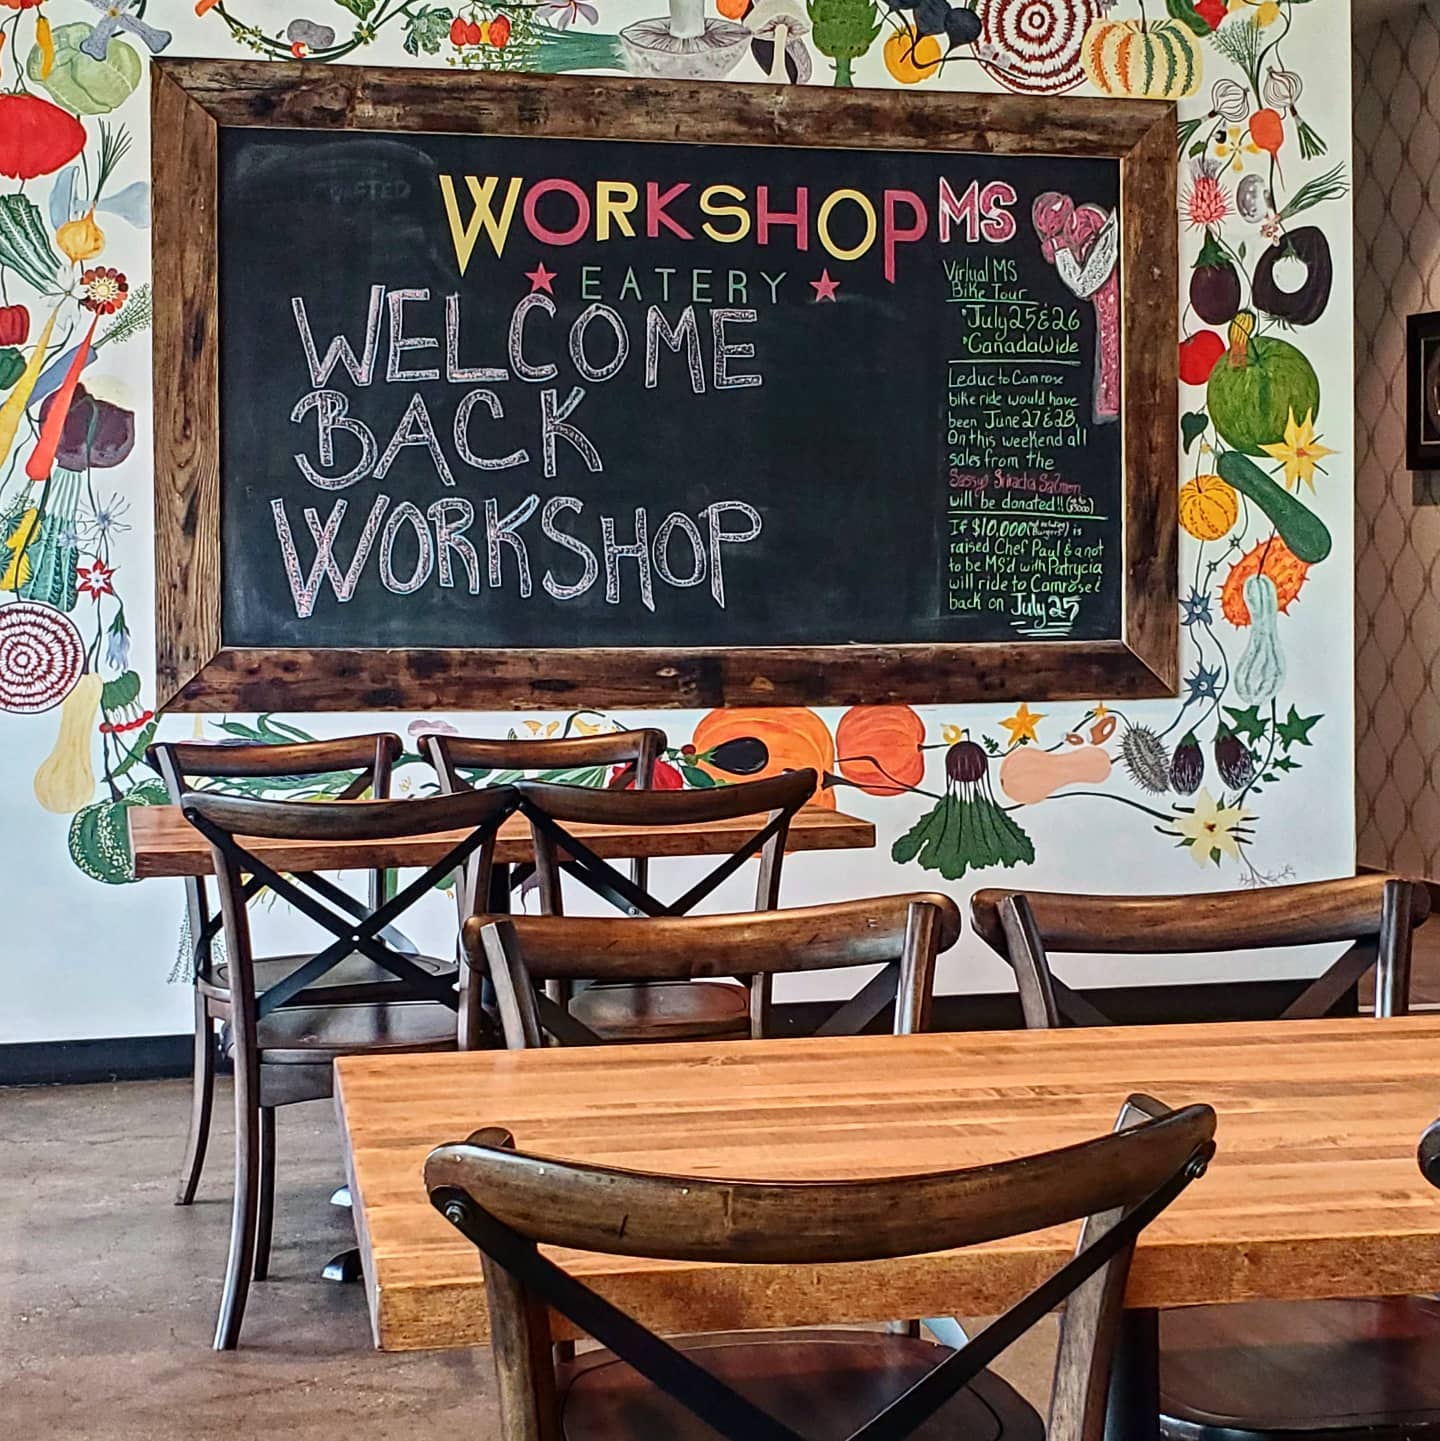 WORKSHOP
EATERY
WELCOME
BACK
WORKSHOP
MS
Virtual MS
Bike Tour
•July 25 & 26
•Canada Wide
Leduc to Camrose
bike ride would have
been June 27 & 28.
On this weekend all
sales from the
Sassy Sriracha Salmon
will be donated!! (up to $5000)
If $10,000 is
raised Chef Paul & a not
to be MS'd with Patrycia
will ride to Camrose &
back on July 25